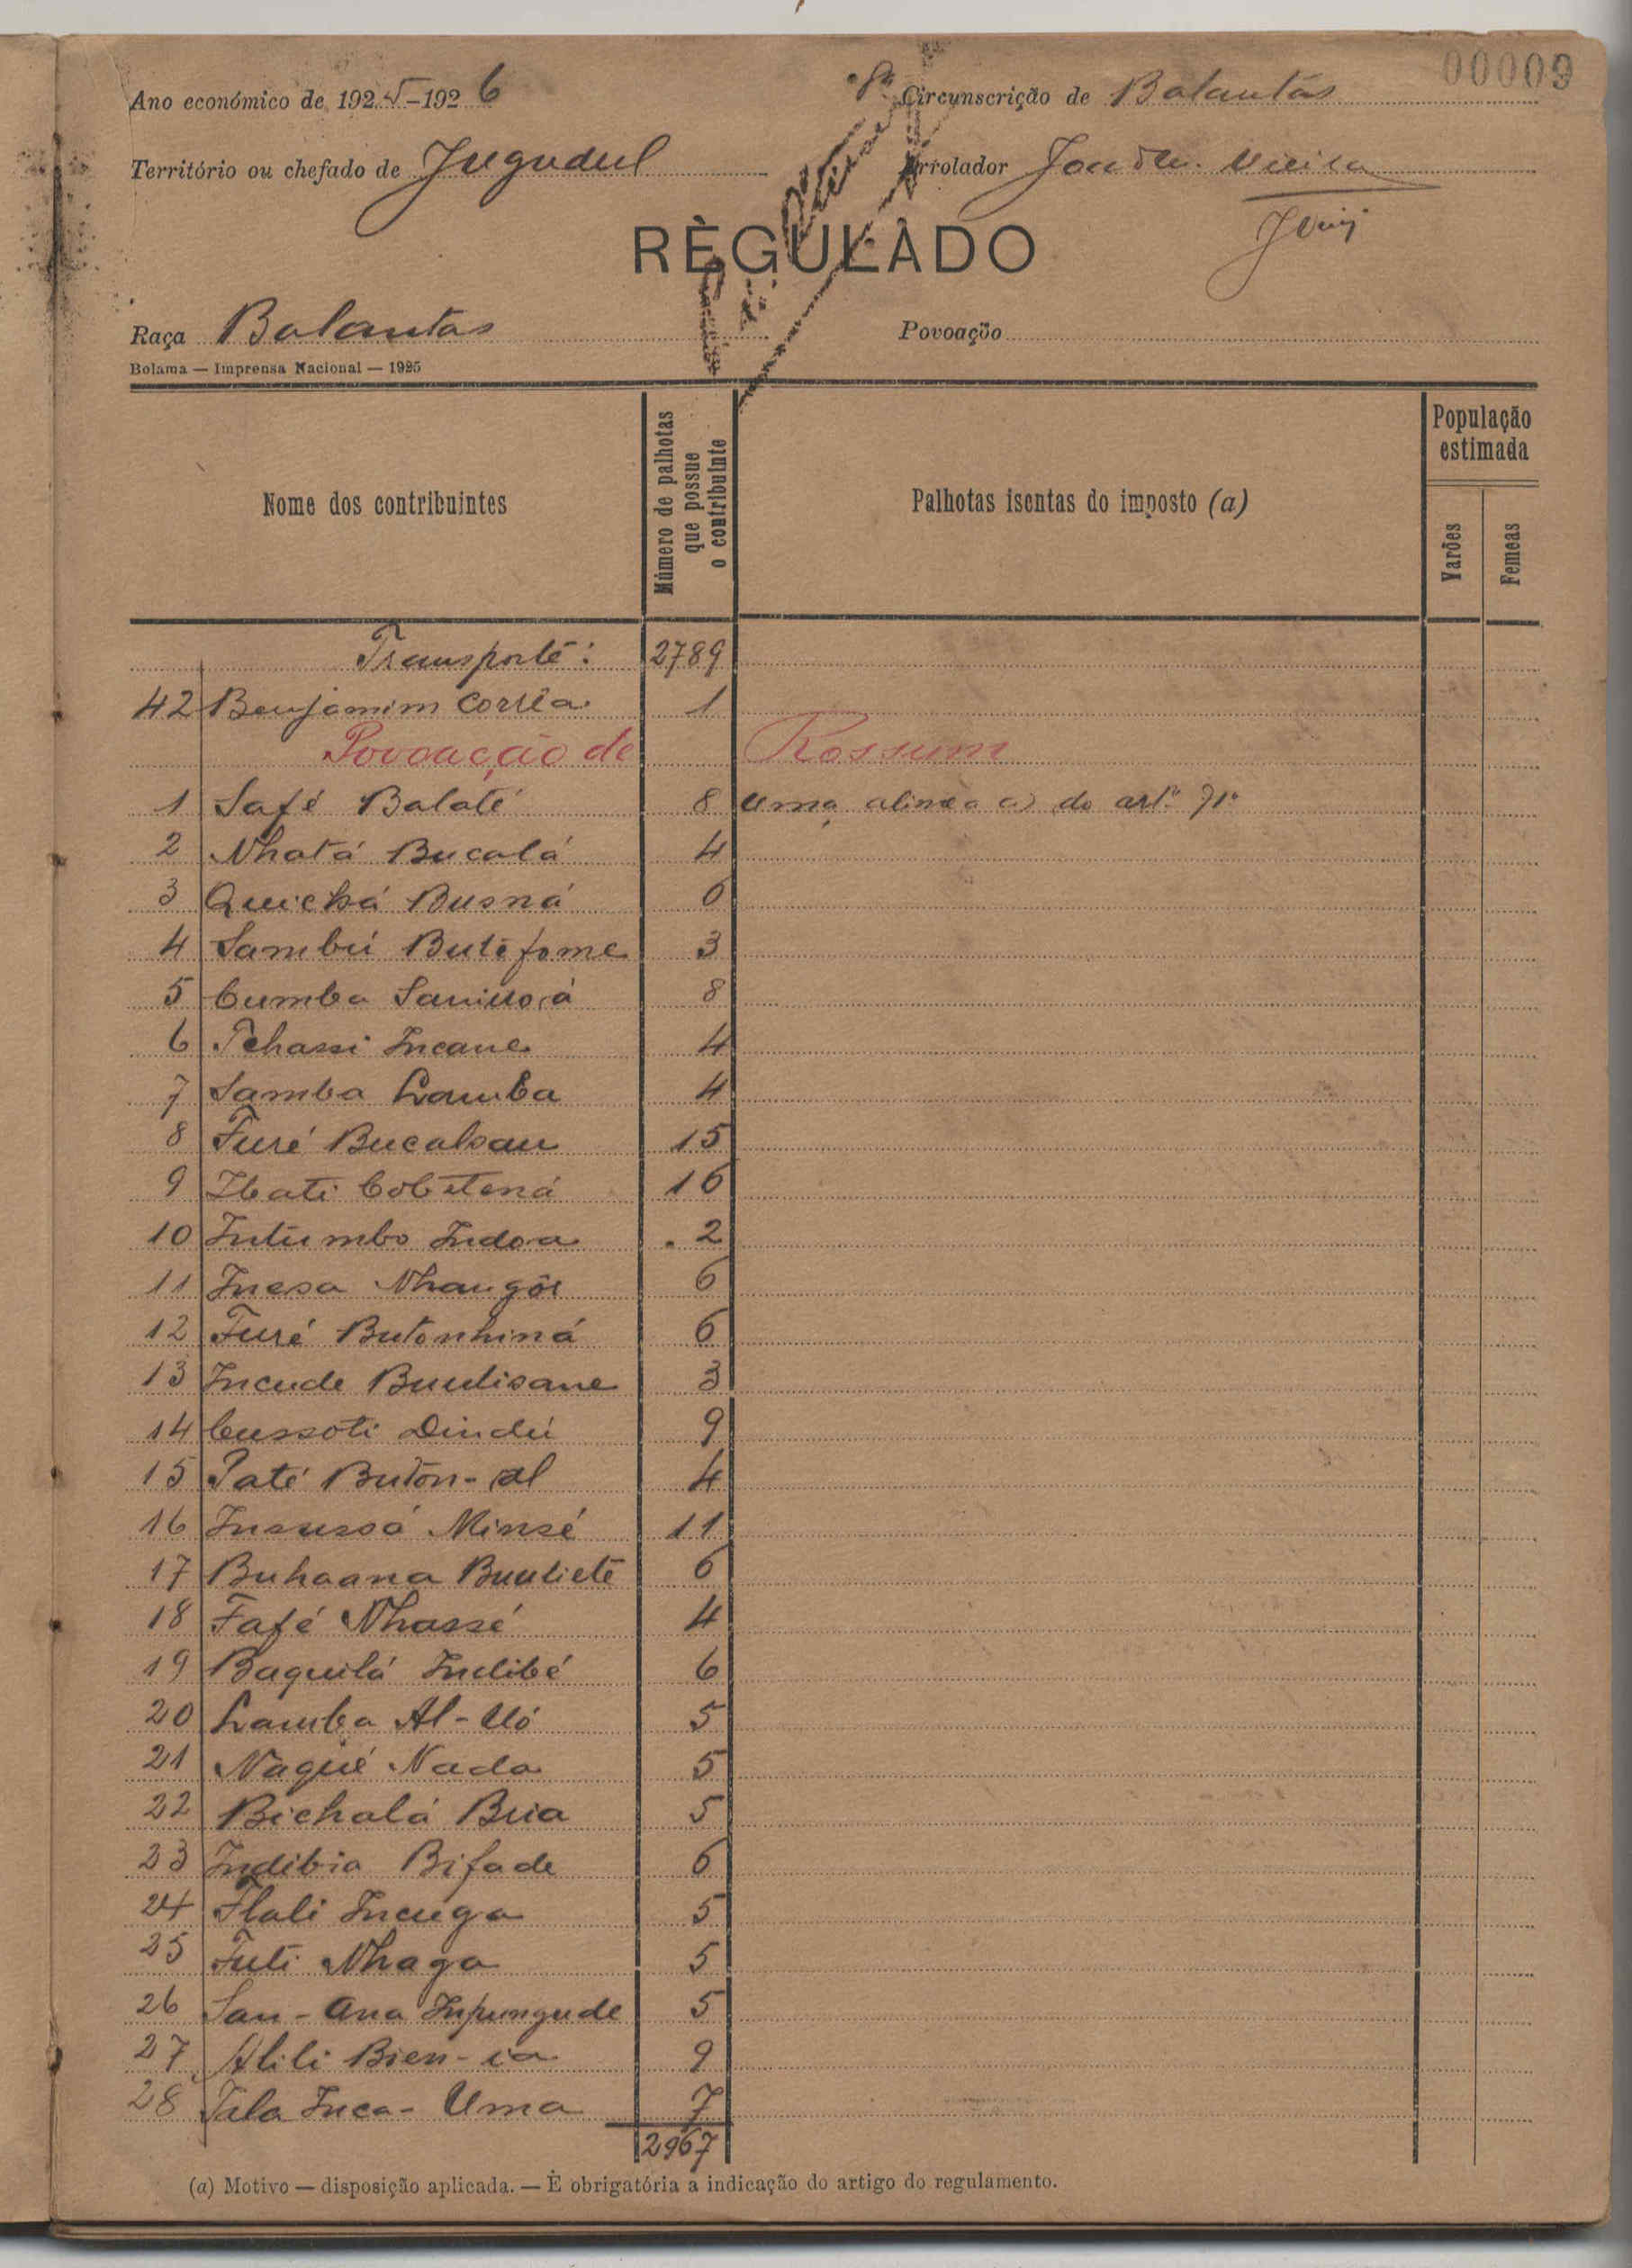 00009
Ano económico de 1925-1926 Circunscrição de Balantas
Território ou chefado de Jugudul Arrolador João M. Vieira
REGULADO
Raça Balantas Povoação
Bolama — Imprensa Nacional — 1925
Nome dos contribuintes Número de palhotas que possue o contribuinte Palhotas isentas do imposto (a) População estimada
Varões Femeas
Transporte: 2789
42 Benjamim Corrêa 1
Povoação de Rossum
1 Safé Balaté 8 uma alinea a) do artº 71º
2 Nhatá Bucalá 4
3 Quichá Busná 6
4 Sambú Butefome 3
5 Cumba 8
6 Tchassi Incane 4
7 Samba Lamba 4
8 Furé Bucalsau 15
9 16
10 Intumbo Indoa 2
11 Inesa Nhangôr 6
12 Furé Butonhiná 6
13 Incude Buntisane 3
14 Cussoti Dindú 9
15 Paté Buton-al 4
16 Insussá Minsé 11
17 Buhaana Buntieté 6
18 Fafé Nhassé 4
19 Baquilá Indibé 6
20 Lamba Al-Uó 5
21 Naqué Nada 5
22 Bichalá Bria 5
23 Indibia Bifade 6
24 Incuga 5
25 Futi Nhaga 5
26 San-Ana Inpungude 5
27 Alili Bien-ia 9
28 Tala Inca-Uma 7
2967
(a) Motivo — disposição aplicada. — É obrigatória a indicação do artigo do regulamento.